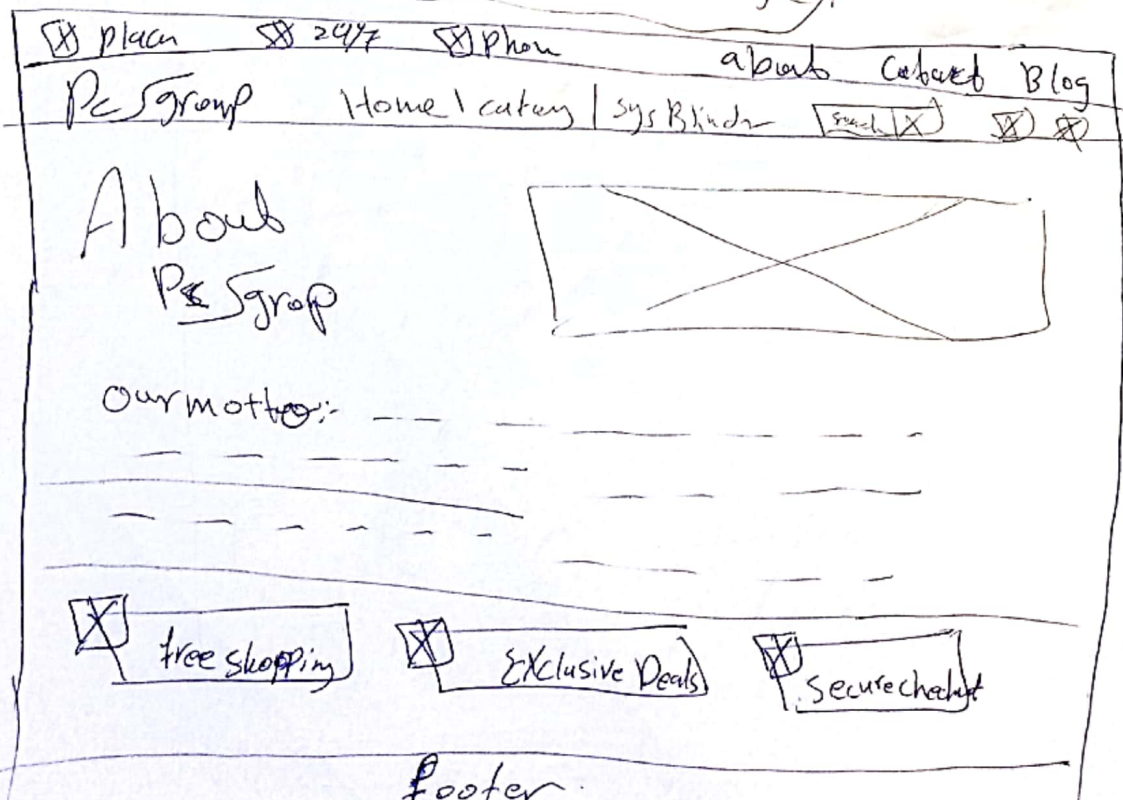 place 24/7 Phone
about Contact Blog
PcSgroup Home | catagy | sys Blindr Search
About
PcSgrop
Our motto:-
free shopping Exclusive Deals Secure checkout
footer